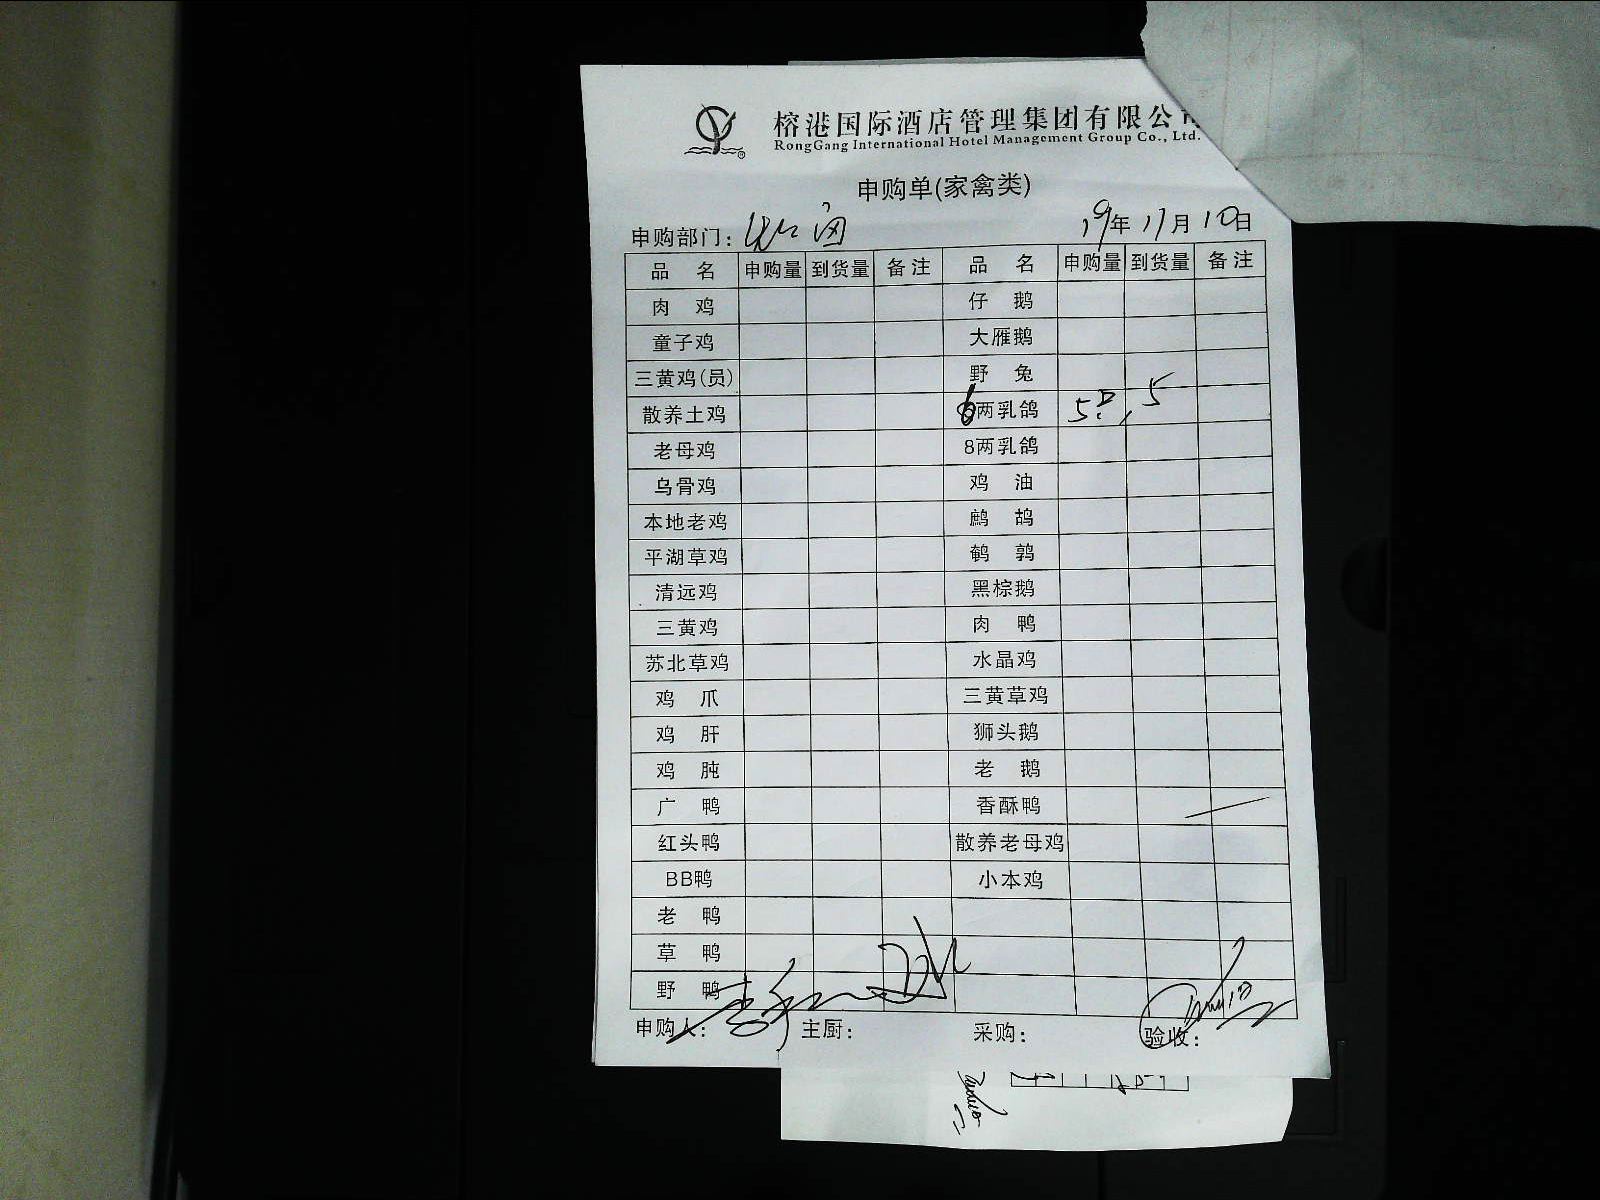 榕港国际酒店管理集团有限公司
RongGang International Hotel Management Group Co., Ltd.
申购单(家禽类)
申购部门: 19年 11月 10日
品 名 申购量 到货量 备注 品 名 申购量 到货量 备注
肉 鸡 仔 鹅
童子鸡 大雁鹅
三黄鸡(员) 野 兔
散养土鸡 6两乳鸽 5 5
老母鸡 8两乳鸽
乌骨鸡 鸡 油
本地老鸡 鹧 鸪
平湖草鸡 鹌 鹑
清远鸡 黑棕鹅
三黄鸡 肉 鸭
苏北草鸡 水晶鸡
鸡 爪 三黄草鸡
鸡 肝 狮头鹅
鸡 肫 老 鹅
广 鸭 香酥鸭
红头鸭 散养老母鸡
BB鸭 小本鸡
老 鸭
草 鸭
野 鸭
申购人: 主厨: 采购: 验收: